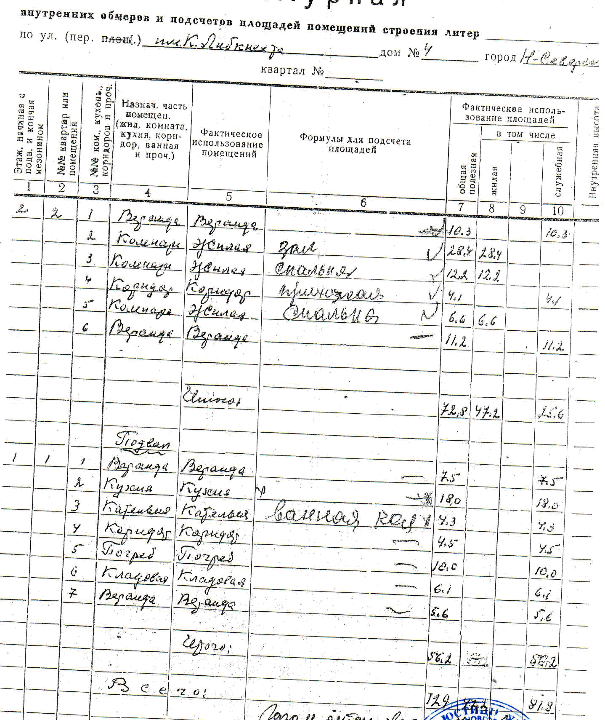 внутренних обмеров и подсчетов площадей помещений строения литер
по ул. (пер. площ.) им К. Либкнехта дом № 4 город Н-
квартал №
Этаж, начиная с подв. и кончая мезонином
№№ квартир или помещений
№№ ком., кухонь, коридоров и проч.
Назнач. часть помещен. (жил. комната, кухня, коридор, ванная и проч.)
Фактическое использование помещений
Формулы для подсчета площадей
Фактическое использование площадей
в том числе
общая полезная
жилая
служебная
Внутренняя высота
1 2 3 4 5 6 7 8 9 10
2 2 1 Веранда Веранда 10.3 10.3
2 Комната Жилая зал 28,4 28,4
3 Комната Жилая спальня 12.2 12.2
4 Коридор Коридор прихожая 4,1 4,1
5 Комната Жилая Спальня 6.6 6.6
6 Веранда Веранда 11.2 11.2
Итого: 72,8 47.2 25.6
Подвал
1 1 1 Веранда Веранда 7.5 7.5
2 Кухня Кухня 18.0 18.0
3 Котельня Котельня ванная 4.3 4.3
4 Коридор Коридор 4.5 4.5
5 Погреб Погреб 10,0 10,0
6 Кладовая Кладовая 6.1 6,1
7 Веранда Веранда 5.6 5,6
Итого: 56.2 56,2
Всего: 129 81.8